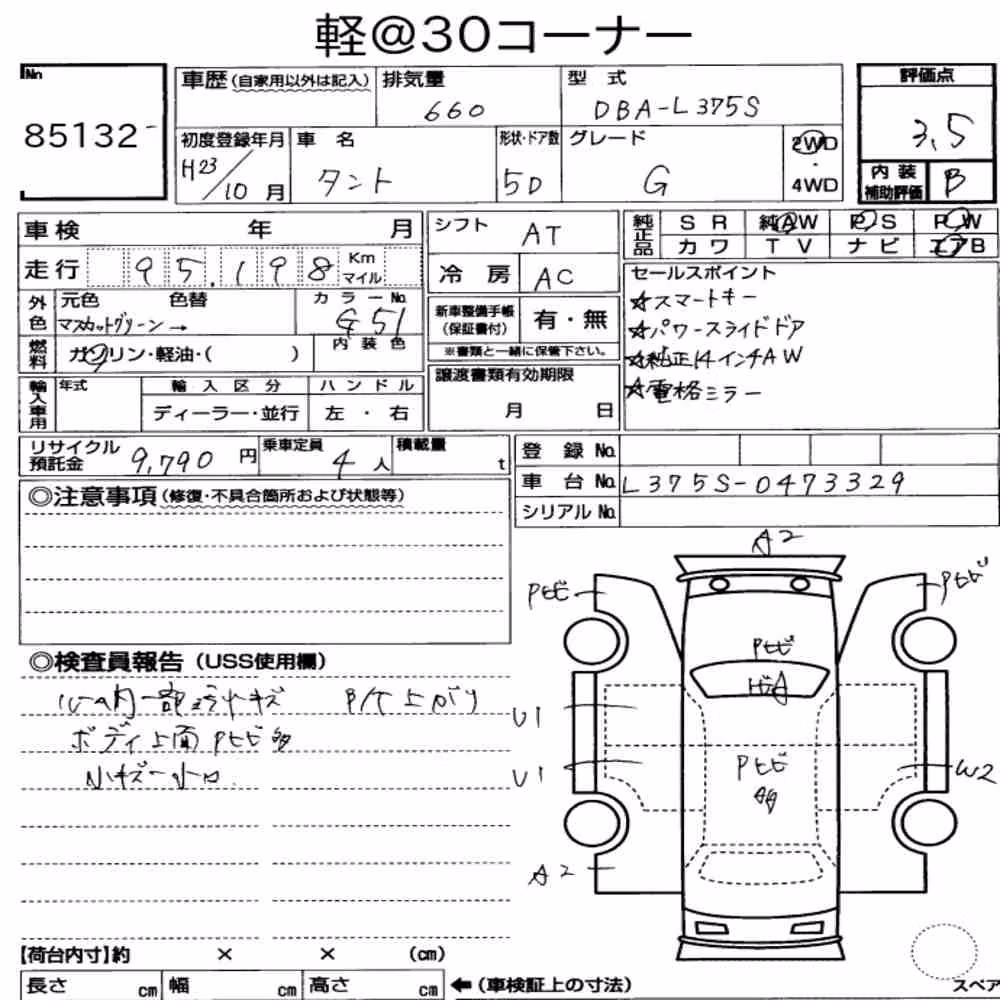 軽@30コーナー
No
85132
車歴 (自家用以外は記入)
排気量
660
型 式
DBA-L375S
評価点
3.5
初度登録年月
H23/10月
車 名
タント
形状・ドア数
5D
グレード
G
2WD
・
4WD
内 装
補助評価
B
車検 年 月
シフト AT
純正品
SR 純AW PS PW
カワ TV ナビ エアB
走行 95,198 Km マイル
冷 房 AC
セールスポイント
☆スマートキー
☆パワースライドドア
☆純正14インチAW
☆電格ミラー
外色 元色 色替
マスカットグリーン→
カラーNo.
G51
新車整備手帳
(保証書付)
有・無
※書類と一緒に保管下さい。
燃料 ガソリン・軽油・( )
内装色
譲渡書類有効期限
月 日
輸入車用 年式
輸入区分
ディーラー・並行
ハンドル
左 ・ 右
リサイクル
預託金
9,790 円
乗車定員
4 人
積載量
t
登 録 No.
車 台 No. L375S-0473329
シリアル No.
◎注意事項 (修復・不具合箇所および状態等)
A2
Pヒビ
Pヒビ
Pヒビ
U1
U1
Pヒビ
多
W2
A2
◎検査員報告 (USS使用欄)
ボディ上面Pヒビ多
小キズ
【荷台内寸】約 × × (cm)
長さ cm 幅 cm 高さ cm
←(車検証上の寸法)
スペア